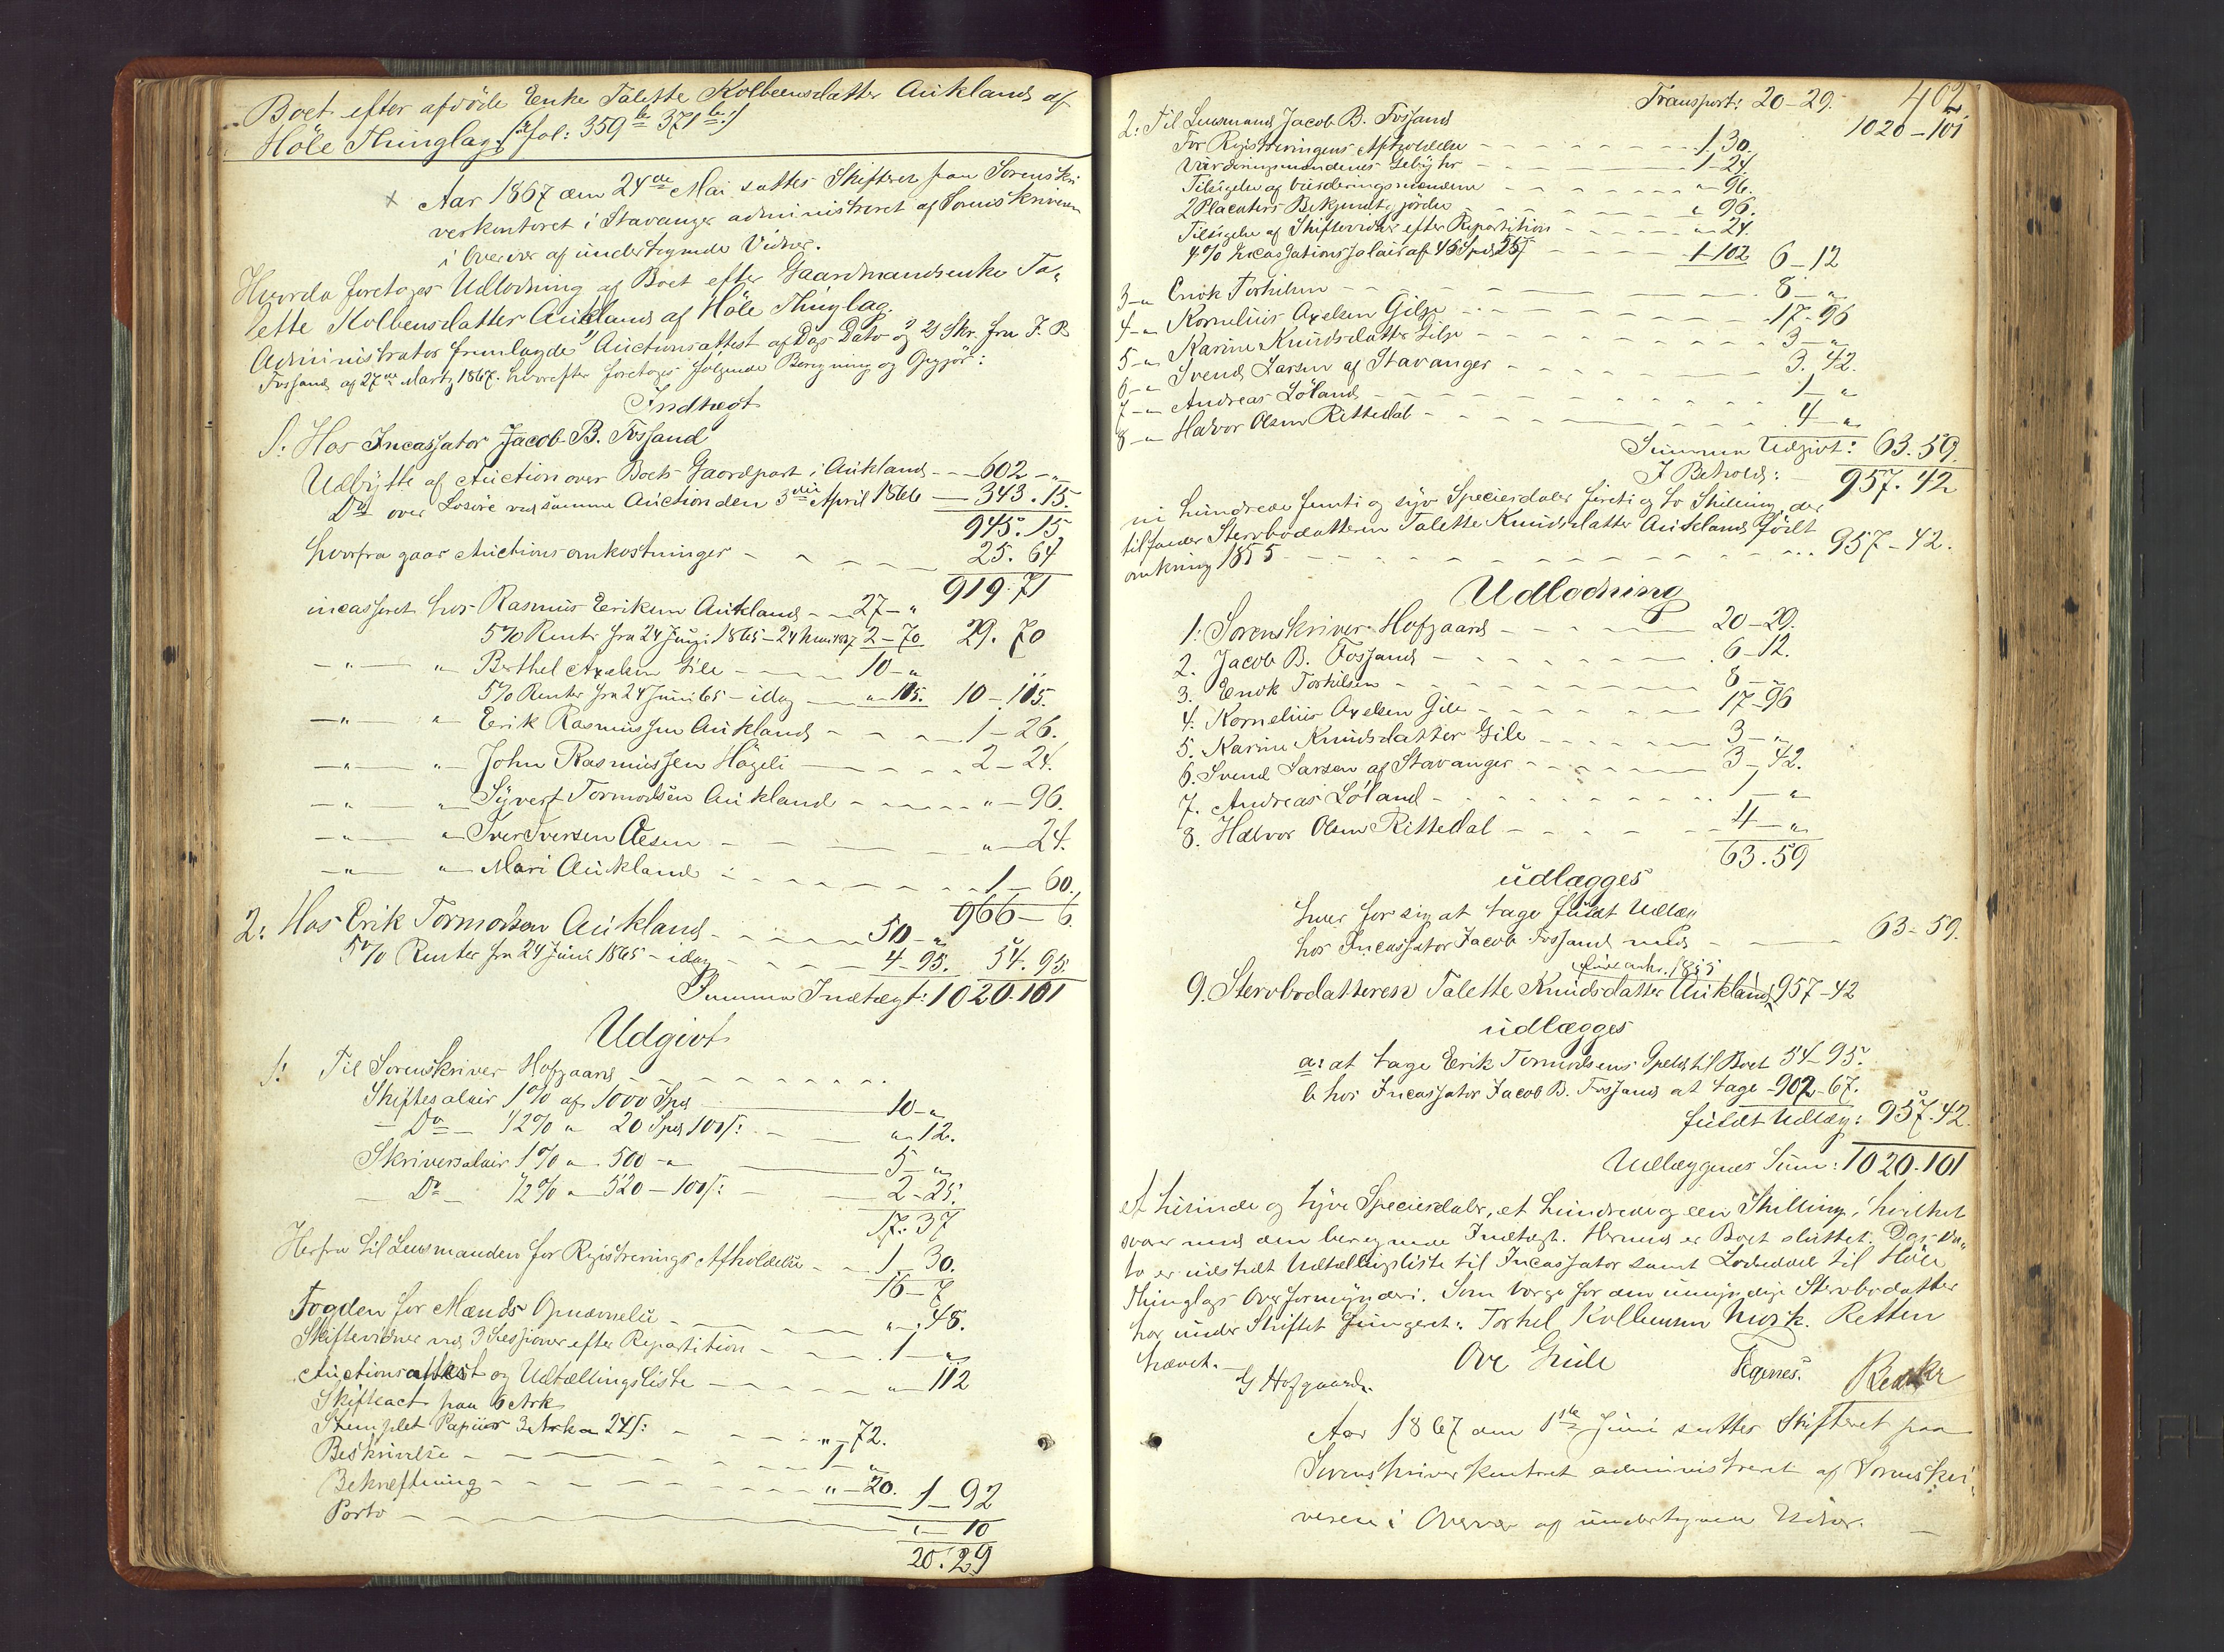 Boet efter afdöde Enke Talette Kolbeensdatter Auklands af
Höle Thinglag. (: fol: 359 b 371 b :)
Aar 1867 den 24de Mai sattes Skifteret paa Sorenskri
verkontoret i Stavanger administreret af Sorenskriveren
i Overvær af undertegnede Vidner.
Hvorda foretoges Udlodning af Boet efter Gaardmandsenke Ta-
lette Kolbensdatter Aukland af Höle Thinglag.
Administrator fremlagde 1) Auctionsattest af Dags Dato og 2) Skr. fra J. B
Fossand af 27de Marts 1867. hvorefter foretoges følgende Beregning og Opgjør:
Indtægt
1: Hos Incassator Jacob B. Fossand
Udbytte af Auction over Boets Gaardpart i Aukland - - 602 - "
Do over Løsøre ved samme Auction den 3die April 1866 — 343.15.
945.15
hvorfra gaar Auctionsomkostninger - - - - 25.64
919.71
incasseret hos Rasmus Eriksen Aukland - - 27 - "
5% Rente fra 24 Juni 1865 - 24 Mai 1867 2 - 70 29.70
- " - " Berthel Axelsen Gile - - - 10 - "
5% Renter fra 24 Juni 65 - idag - " - 105. 10 - 105.
- " - " Erik Rasmussen Aukland - - - 1 - 26.
- " - " John Rasmussen Högeli - - - 2 - 24.
- " - " Syvert Tormodsen Aukland - - - " - 96.
- " - " Iver Iversen Aesen - - - " - 24.
- " - " Mari Aukland - - - 1 - 60.
966 - 6.
2: Hos Erik Tormodsen Aukland - - - 50 - "
5% Renter fra 24 Juni 1865 - idag - - 4 - 95. 54.95.
Summa Indtægt: 1020.101
Udgivt
1: Til Sorenskriver Hofgaard - - -
Skiftesalair 1% af 1000 Spd — 10 - "
- Do - 1/2% " 20 Spd 101 s: - " - 12.
Skriversalair 1% " 500 - " — 5 - "
- Do - 1/2% " 520 - 101 s: — 2 - 25.
17.37
Herfra til Lensmanden for Registrerings Afholdelse - - 1 - 30.
16 - 7
Fogden for Mænds Opnævnelse - - - " - 48.
Skiftevidner ved 3 Sessioner efter Repartition - - 1 - "
Auctionsattest og Udtællingsliste - - - " - 112
Skifteact paa 6 Ark
Stemplet Papiir 3 Ark a 24 s: - - - " - 72.
Beskrivelse - - - 1 - "
Bekræftning - - - " - 20. 1 - 92
Porto - - - " - 10
20.29
402
Transport: 20 - 29. 1020 - 101
2: Til Lensmand Jacob B. Fossand
For Registreringens Afholdelse - - - 1.30.
Vurderingsmændenes Gebyhr - - - 1 - 24.
Tilsigelse af Vurderingsmændene - - - " - 96.
2 Placaters Bekjendtgjørelse - - - " 96.
Tilsigelse af Skiftevidner efter Repartition - - - " - 24.
4% Incassationssalair af 46 Spd 25 s - - 1 - 102 6 - 12
3 - " Enok Torkilsen - - - 8 - "
4 - " Kornelius Axelsen Gilje - - - 17 - 96
5 - " Karine Knudsdatter Gilje - - - 3 - "
6 - " Svend Larsen af Stavanger - - - 3.42.
7 - " Andreas Løland - - - 1 - "
8 - " Halvor Olsen Rittedal - - - 4 - "
Summa Udgivt: 63.59.
I Behold: 957.42
ni hundrede femti og syv Speciesdaler firti og to Skilling, der
tilfalder Stervbodatteren Talette Knudsdatter Aukland, født
omkring 1855 - - - 957 - 42.
Udlodning
1: Sorenskriver Hofgaard - - - 20 - 29.
2. Jacob B. Fossand - - - 6 - 12.
3. Enok Torkilsen - - - 8 - "
4. Kornelius Axelsen Gile - - - 17 - 96
5. Karine Knudsdatter Gile - - - 3 - "
6. Svend Larsen af Stavanger - - - 3 - 42.
7. Andreas Løland - - - 1 - "
8. Halvor Olsen Rittedal - - - 4 - "
63.59
udlægges
hver for sig at tage fuldt Udlæg
hos Incassator Jacob Fossand med - - - 63 - 59.
født omkr. 1855
9. Stervbodatteren Talette Knudsdatter Aukland, 957 - 42
udlægges
a: at tage Erik Tormodsens Gjeld til Boet 54 - 95.
b hos Incassator Jacob B. Fossand at tage 902 - 67.
fuldt Udlæg: 957.42.
Udlæggenes Sum: 1020 - 101
et tusinde og tyve Speciesdaler, et hundrede og een Skilling, hvilket
svarer med den beregnede Indtægt. Hermed er Boet sluttet. Dags Da-
to er udstedt Udtællingsliste til Incassator samt Lodseddel til Höle
Thinglags Overformynderi. Som Værge for den umyndige Stervbodatter
har under Skiftet fungeret: Torkel Kolbensen Nork. Retten
hævet. -
G Hofgaard. Ove Gule Tegnes.
Aar 1867 den 1ste Juni sattes Skifteret paa
Sorenskriverkontoret administreret af Sorenskri-
veren i Overvær af undertegnede Vidner. -